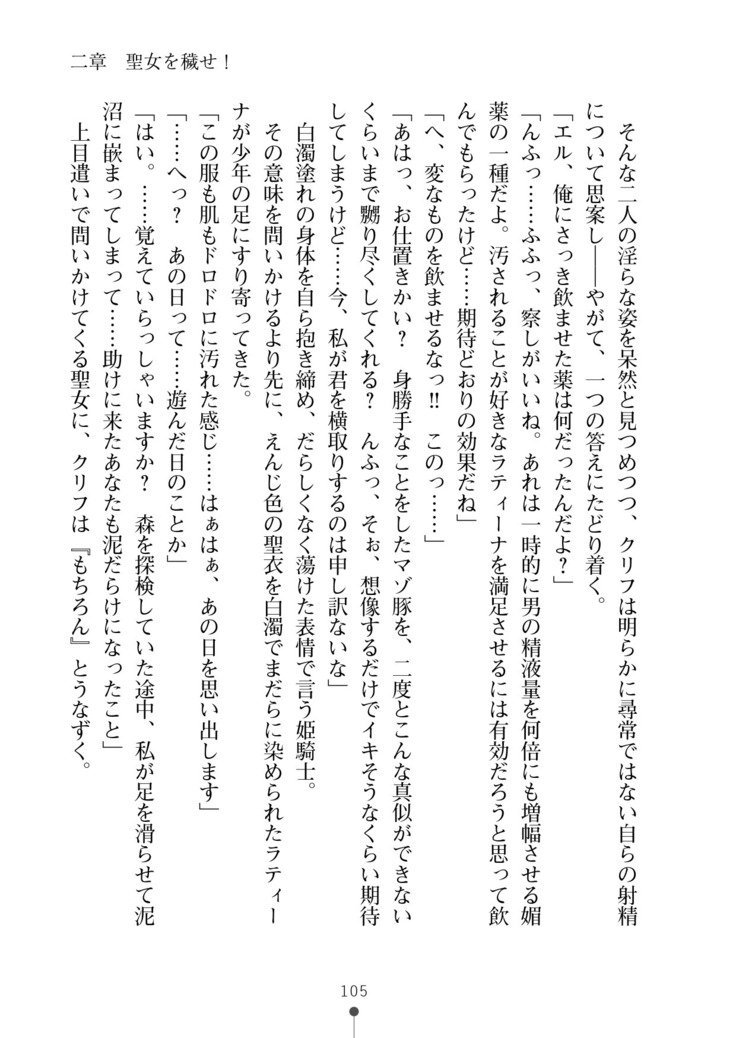 二章　聖女を穢せ！
　そんな二人の淫らな姿を呆然と見つめつつ、クリフは明らかに尋常ではない自らの射精
について思案し――やがて、一つの答えにたどり着く。
「エル、俺にさっき飲ませた薬は何だったんだよ？」
「んふっ……ふふっ、察しがいいね。あれは一時的に男の精液量を何倍にも増幅させる媚
薬の一種だよ。汚されることが好きなラティーナを満足させるには有効だろうと思って飲
んでもらったけど……期待どおりの効果だね」
「へ、変なものを飲ませるなっ!!　このっ……」
「あはっ、お仕置きかい？　身勝手なことをしたマゾ豚を、二度とこんな真似ができない
くらいまで嬲り尽くしてくれる？　んふっ、そぉ、想像するだけでイキそうなくらい期待
してしまうけど……今、私が君を横取りするのは申し訳ないな」
　白濁塗れの身体を自ら抱き締め、だらしなく蕩けた表情で言う姫騎士。
　その意味を問いかけるより先に、えんじ色の聖衣を白濁でまだらに染められたラティー
ナが少年の足にすり寄ってきた。
「この服も肌もドロドロに汚れた感じ……はぁはぁ、あの日を思い出します」
「……へっ？　あの日って……遊んだ日のことか」
「はい。……覚えていらっしゃいますか？　森を探検していた途中、私が足を滑らせて泥
沼に嵌まってしまって……助けに来たあなたも泥だらけになったこと」
　上目遣いで問いかけてくる聖女に、クリフは『もちろん』とうなずく。
105